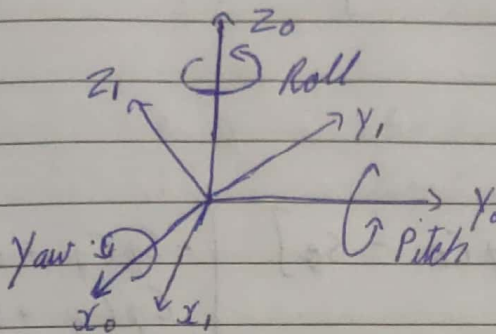 Z₀
Roll
Z₁
Y₁
Y₀
Pitch
Yaw
x₀
x₁